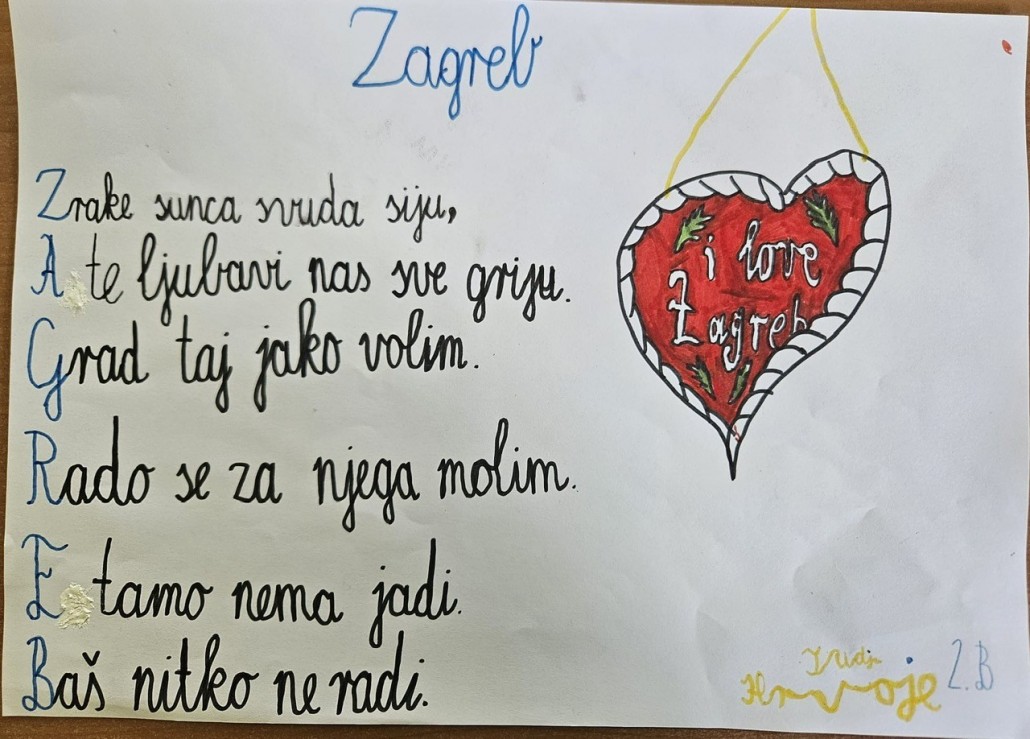 Zagreb
Zrake sunca svuda siju,
A te ljubavi nas sve griju.
Grad taj jako volim.
Rado se za njega molim.
E tamo nema jadi.
Baš nitko ne radi.
i love
Zagreb
Hrvoje
2.B